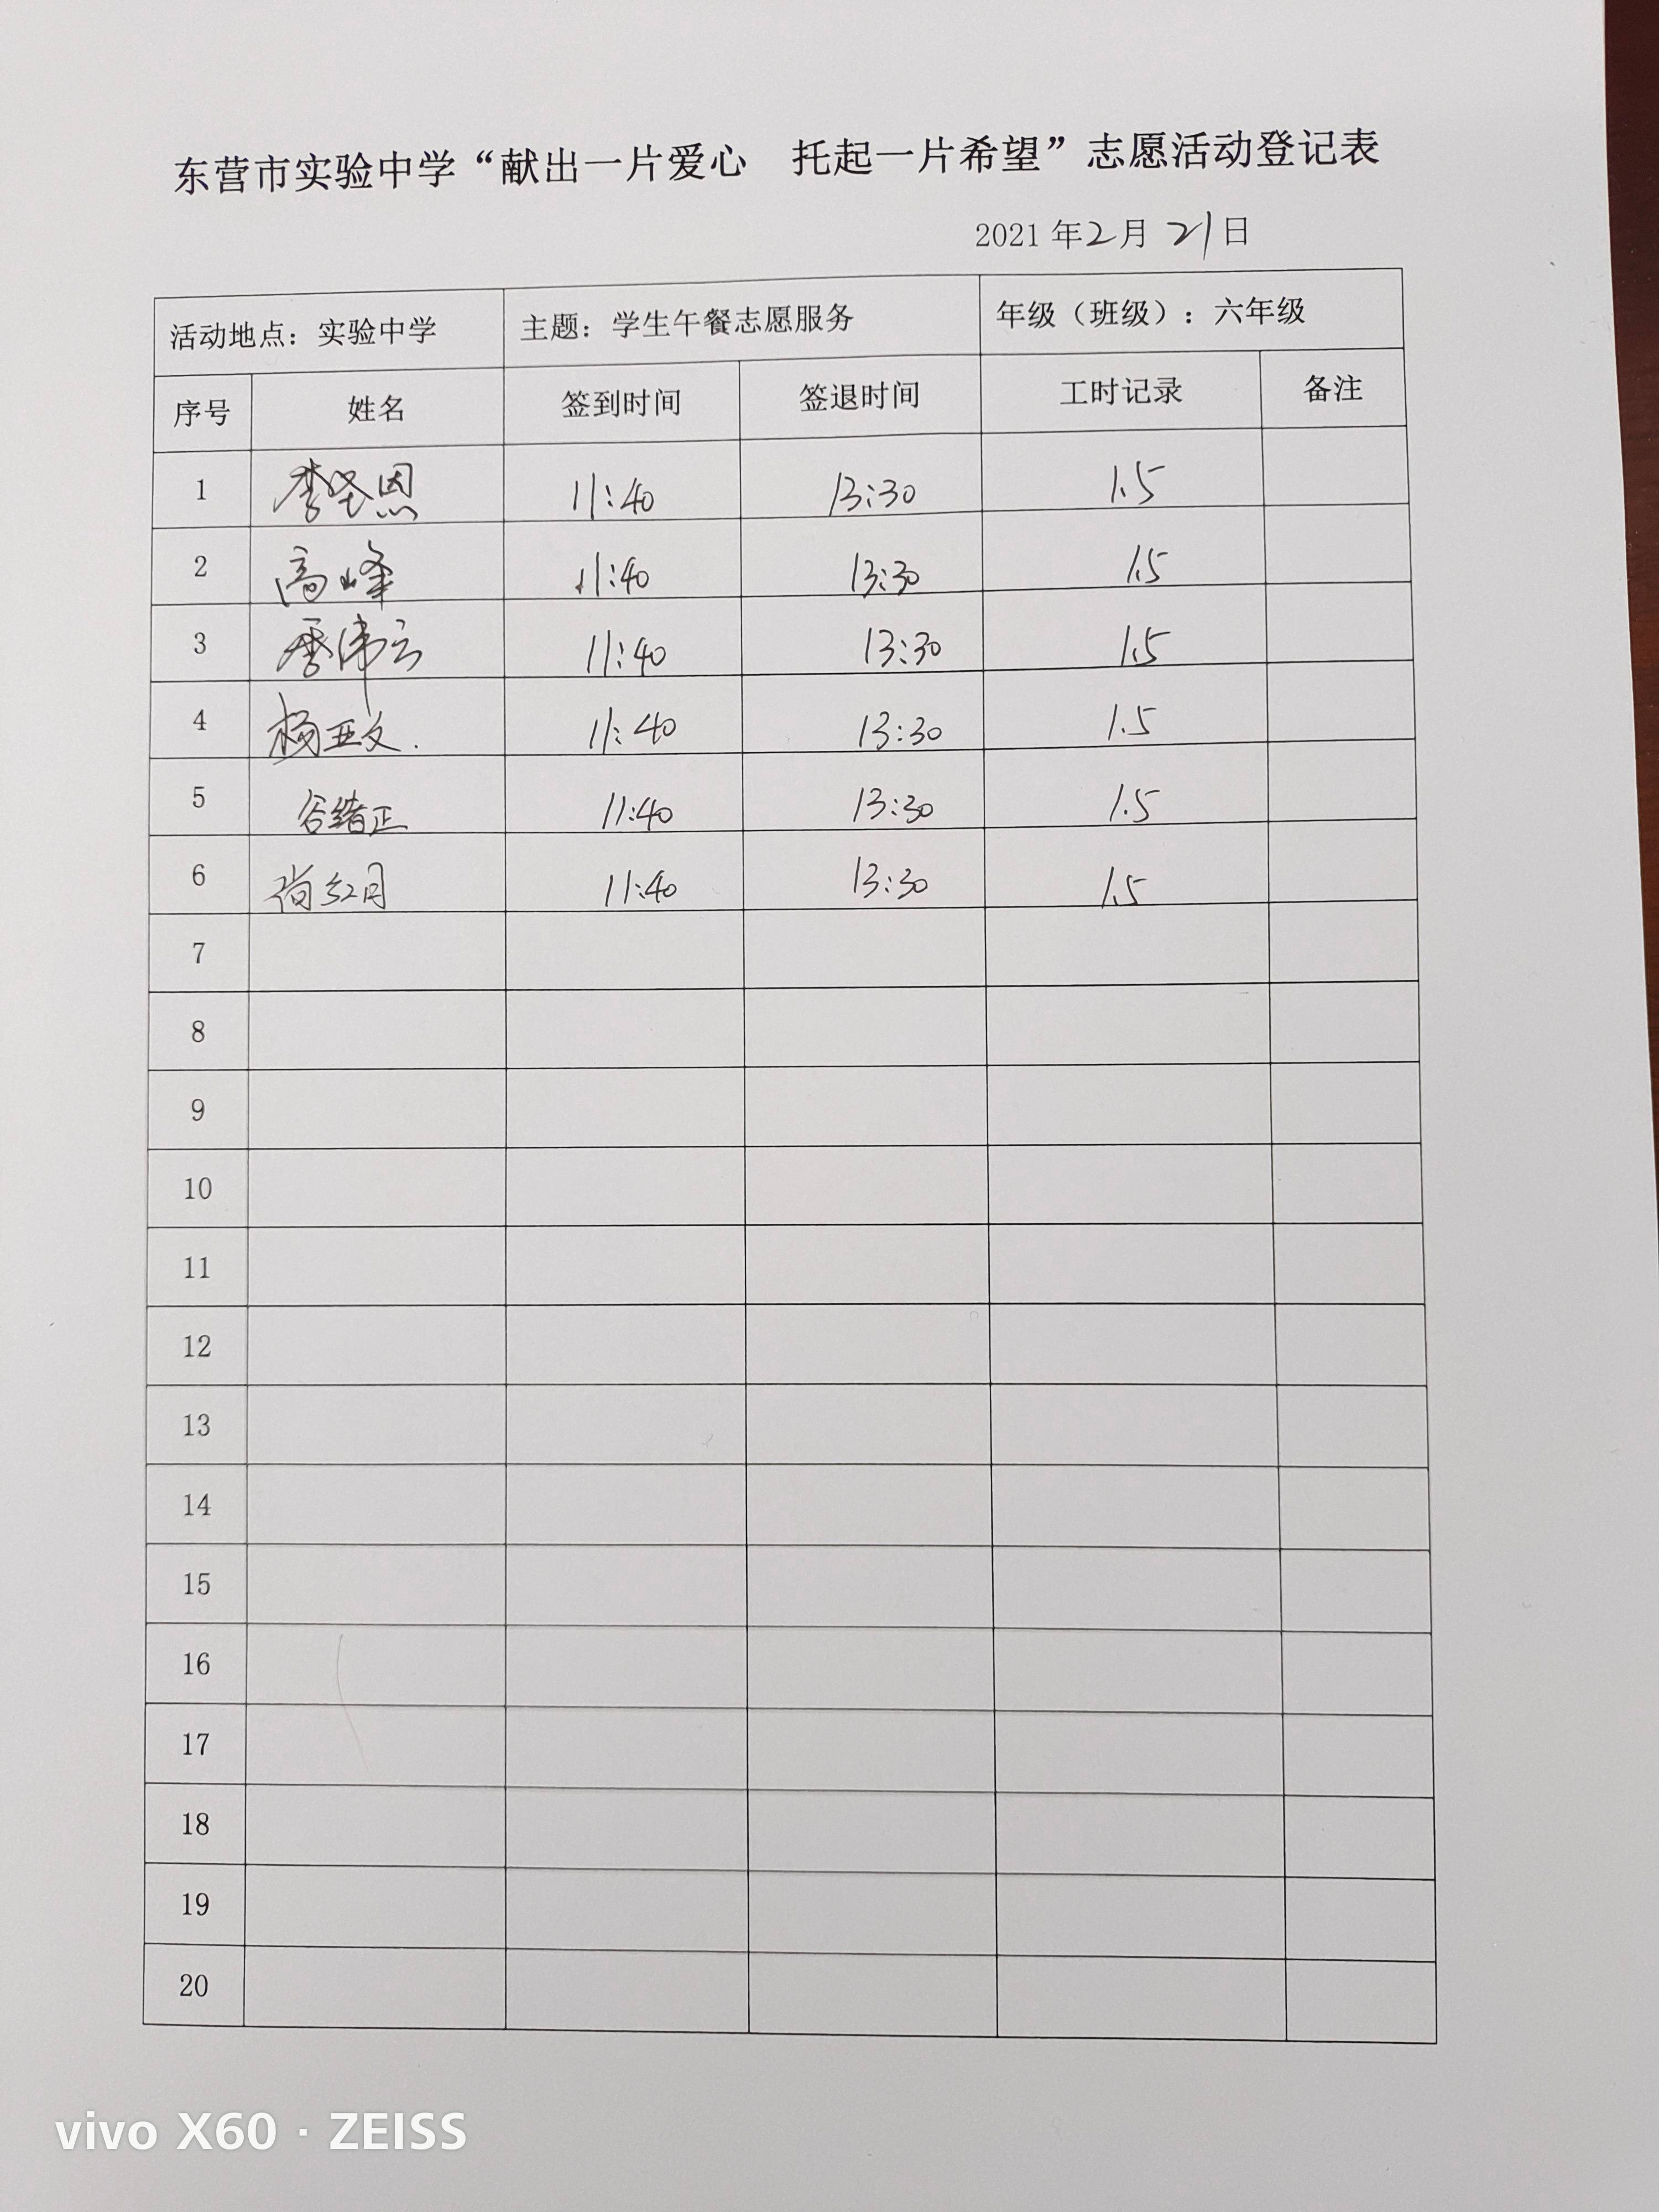 东营市实验中学“献出一片爱心 托起一片希望”志愿活动登记表
2021年2月21日
活动地点：实验中学 主题：学生午餐志愿服务 年级（班级）：六年级
序号 姓名 签到时间 签退时间 工时记录 备注
1 李圣恩 11:40 13:30 1.5
2 高峰 11:40 13:30 1.5
3 季伟云 11:40 13:30 1.5
4 杨亚文. 11:40 13:30 1.5
5 谷绪正 11:40 13:30 1.5
6 尚红月 11:40 13:30 1.5
7
8
9
10
11
12
13
14
15
16
17
18
19
20
vivo X60 · ZEISS